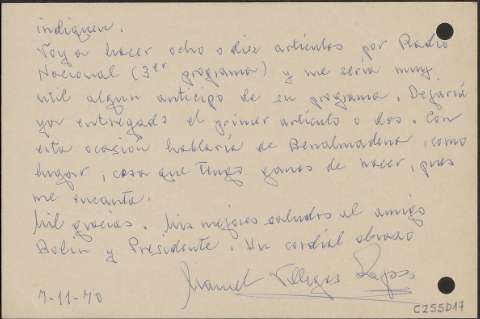 indiquen.
Voy a hacer ocho o diez artículos por Radio
Nacional (3er programa) y me sería muy
util algun anticipo de su programa. Dejaria
ya entregado el primer artículo o dos. Con
esta ocasión hablaría de Benalmadena, como
lugar, cosa que tengo ganas de hacer, pues
me encanta.
Mil gracias. Mis mejores saludos al amigo
Bolin y Presidente. Un cordial abrazo
Manuel Villegas López
7-11-70
C255D17